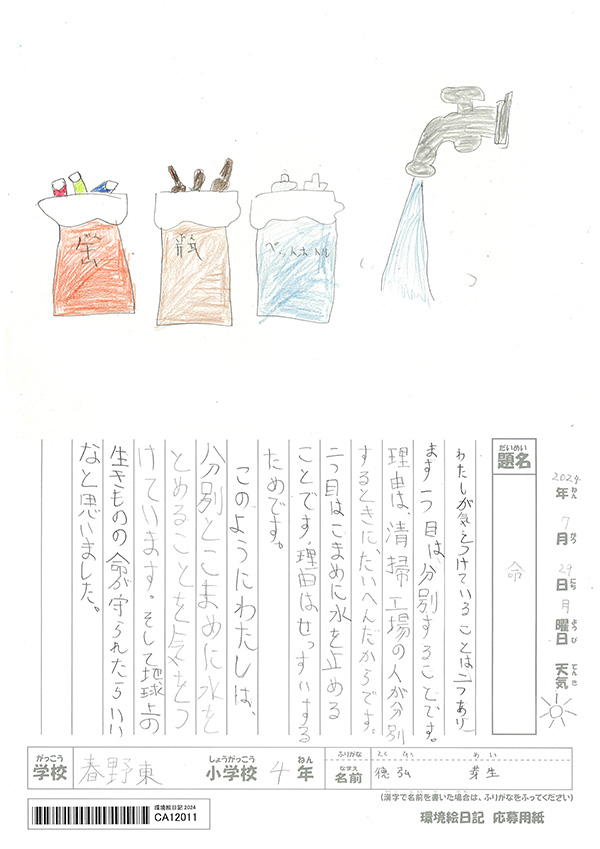 缶
瓶
ペットボトル
2024年ねん
7月がつ
29日にち
月曜日ようび
天気てんき
題名だいめい
命
わたしが気をつけていることは二つあり
ます一つ目は、分別することです。
理由は、清掃工場の人が分別
するときに、たいへんだからです。
二つ目はこまめに水を止める
ことです。理由はせっすいする
ためです。
このようにわたしは、
分別とこまめに水を
とめることを気をつ
けています。そして地球上の
生きものの命が守られたらいい
なと思いました。
がっこう
学校
春野東
しょうがっこう
小学校
4
ねん
年
ふりがな
めい
なまえ
名前
徳弘
芽生
(漢字で名前を書いた場合は、ふりがなをふってください)
環境絵日記 2024
CA12011
環境絵日記 応募用紙